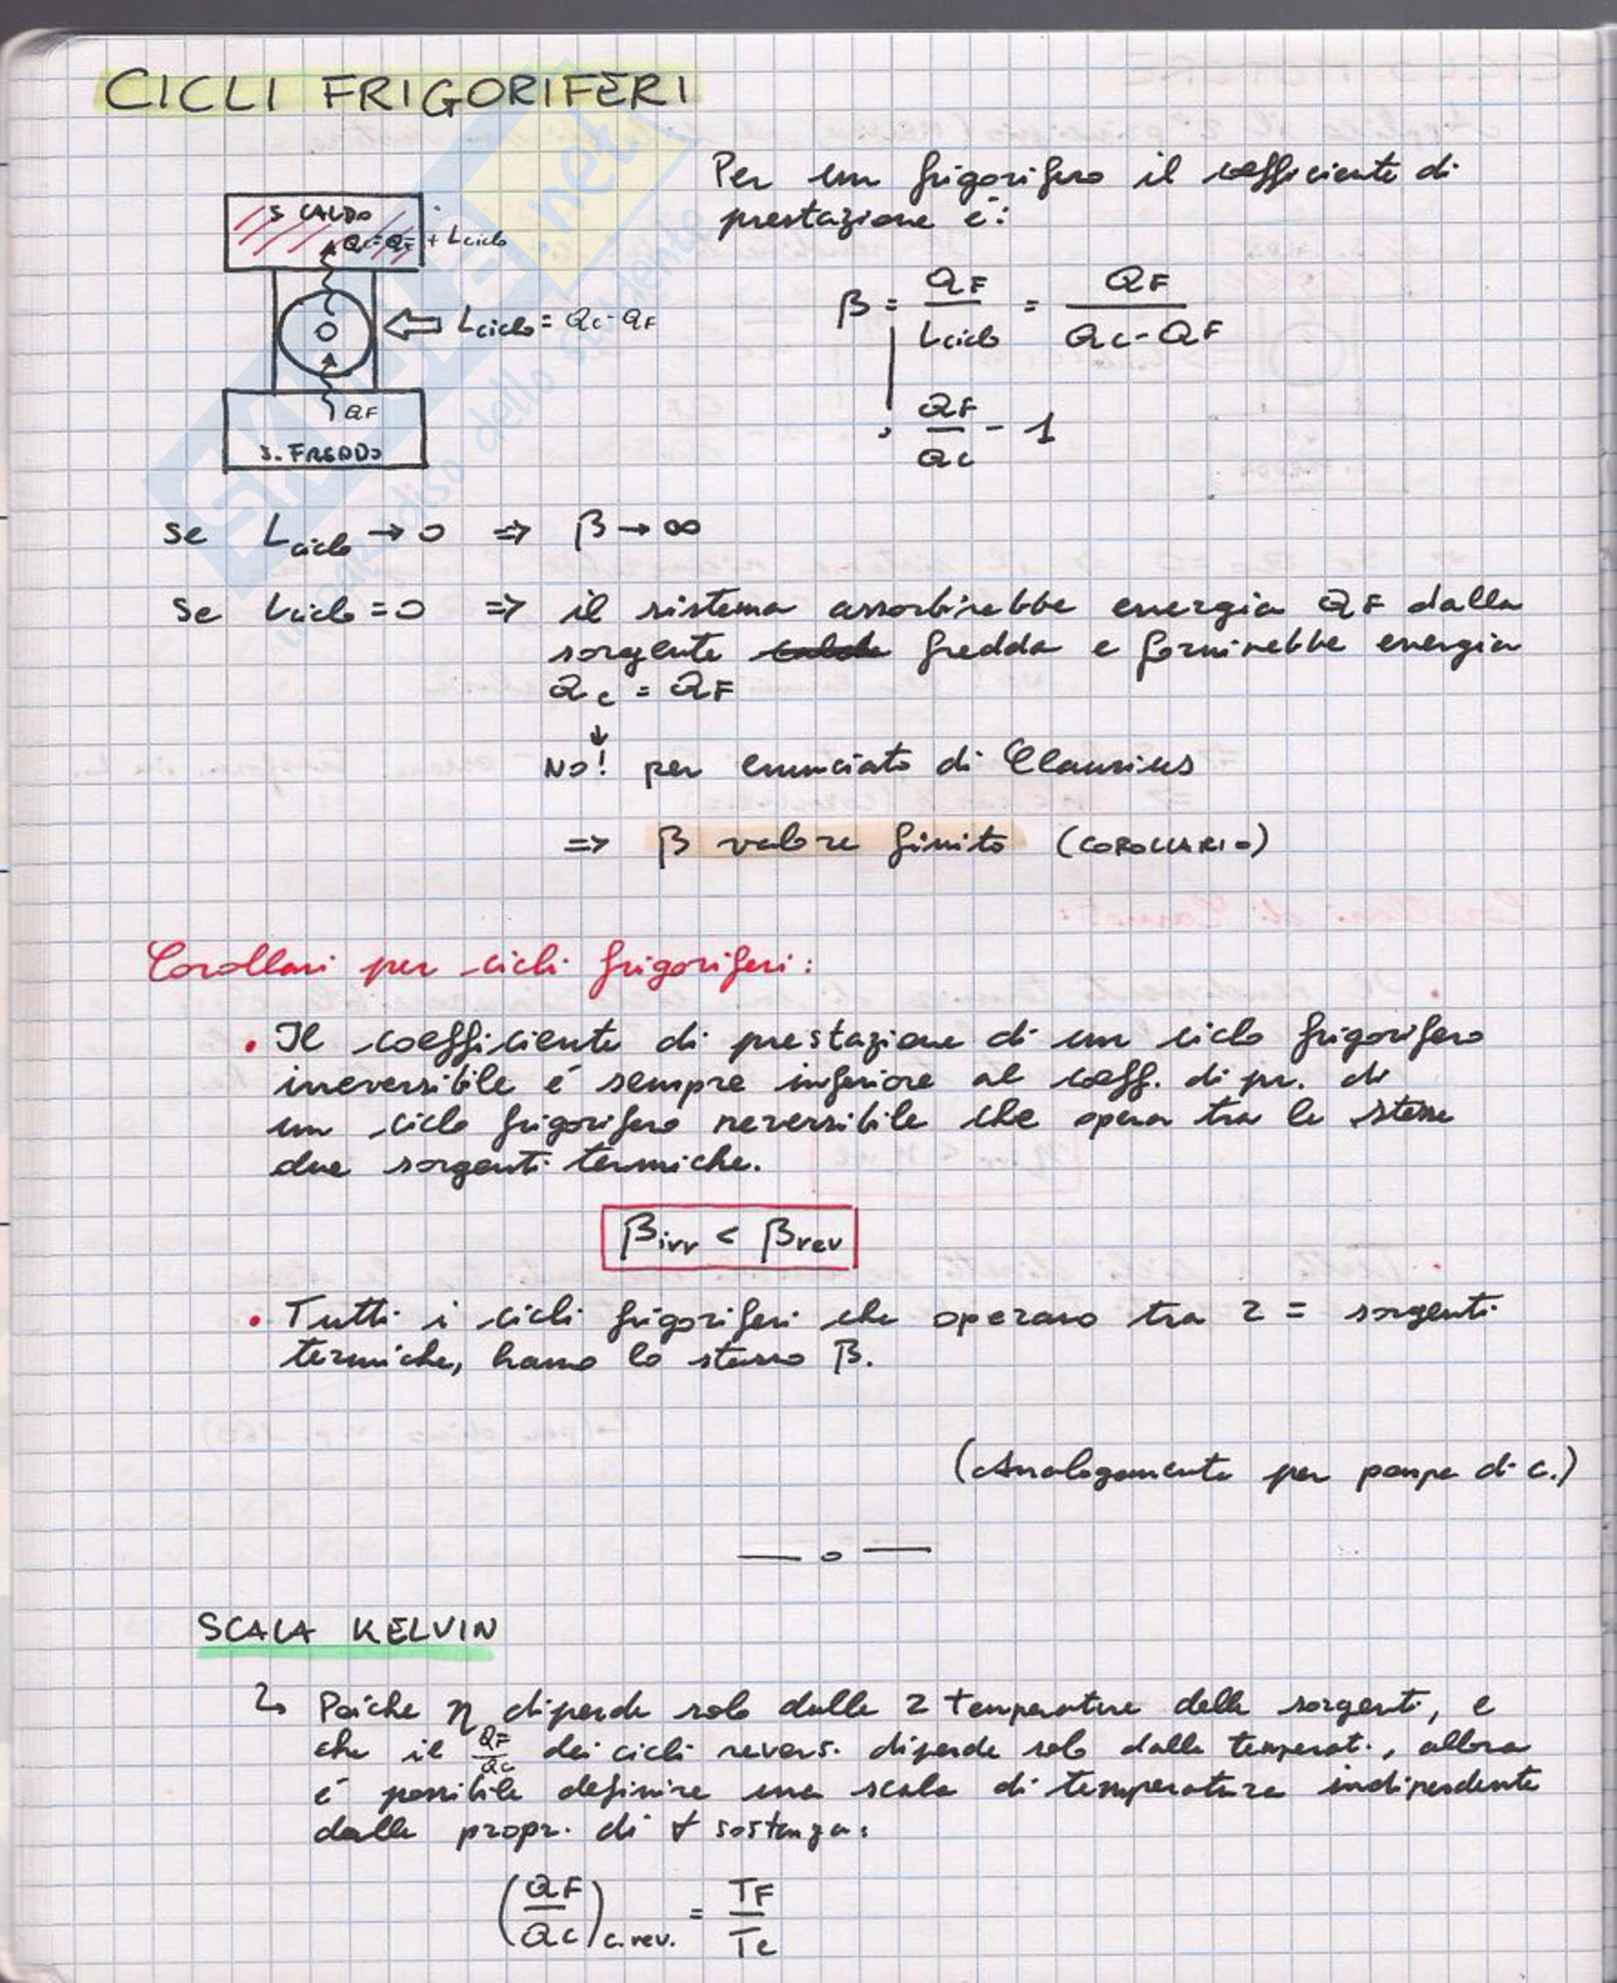 CICLI FRIGORIFERI
Per un frigorifero il coefficiente di
prestazione è:
S CALDO
Qc=QF + Lciclo
Lciclo = Qc-QF
QF
S. FREDDO
β = QF/Lciclo = QF/(Qc-QF)
QF/Qc - 1
se Lciclo → 0 => β → ∞
se Lciclo = 0 => il sistema assorbirebbe energia QF dalla
sorgente fredda e fornirebbe energia
Qc = QF
↓
NO! per enunciato di Clausius
=> β valore finito (COROLLARIO)
Corollari per cicli frigoriferi:
• Il coefficiente di prestazione di un ciclo frigorifero
irreversibile é sempre inferiore al coeff. di pr. di
un ciclo frigorifero reversibile che opera tra le stesse
due sorgenti termiche.
βirr < βrev
• Tutti i cicli frigoriferi che operano tra 2 = sorgenti
termiche, hanno lo stesso β.
(Analogamente per pompe di c.)
— o —
SCALA KELVIN
↳ Poiche η dipende solo dalle 2 temperature delle sorgenti, e
che il QF/Qc dei cicli revers. dipende solo dalle temperat., allora
é possibile definire una scala di temperatura indipendente
dalle propr. di ∀ sostanza:
(QF/Qc)c.rev. = TF/Tc
SKUOLA.net
il paradiso dello studente